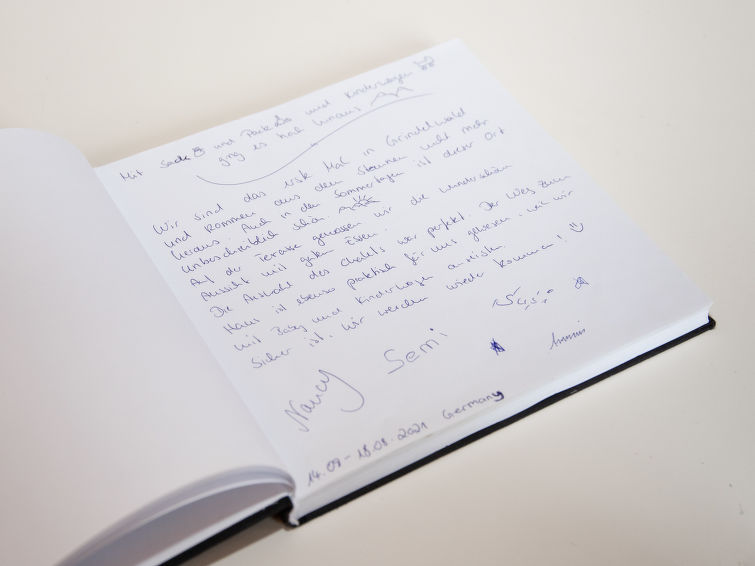 Mit Sack und Pack und Kinderwagen
ging es hoch hinaus
Wir sind das erste Mal in Grindelwald
und kommen aus dem Staunen nicht mehr
heraus. Auch in den Sommertagen ist dieser Ort
unbeschreiblich schön.
Auf der Terasse genossen wir die wunderschöne
Aussicht mit gutem Essen.
Die Auswahl des Chalets war perfekt. Der Weg zum
Haus ist ebenso praktisch für uns gewesen, weil wir
mit Baby und Kinderwagen anreisten.
Sicher ist, wir werden wieder kommen!
Nancy Semi
14.08 - 18.08.2021 Germany